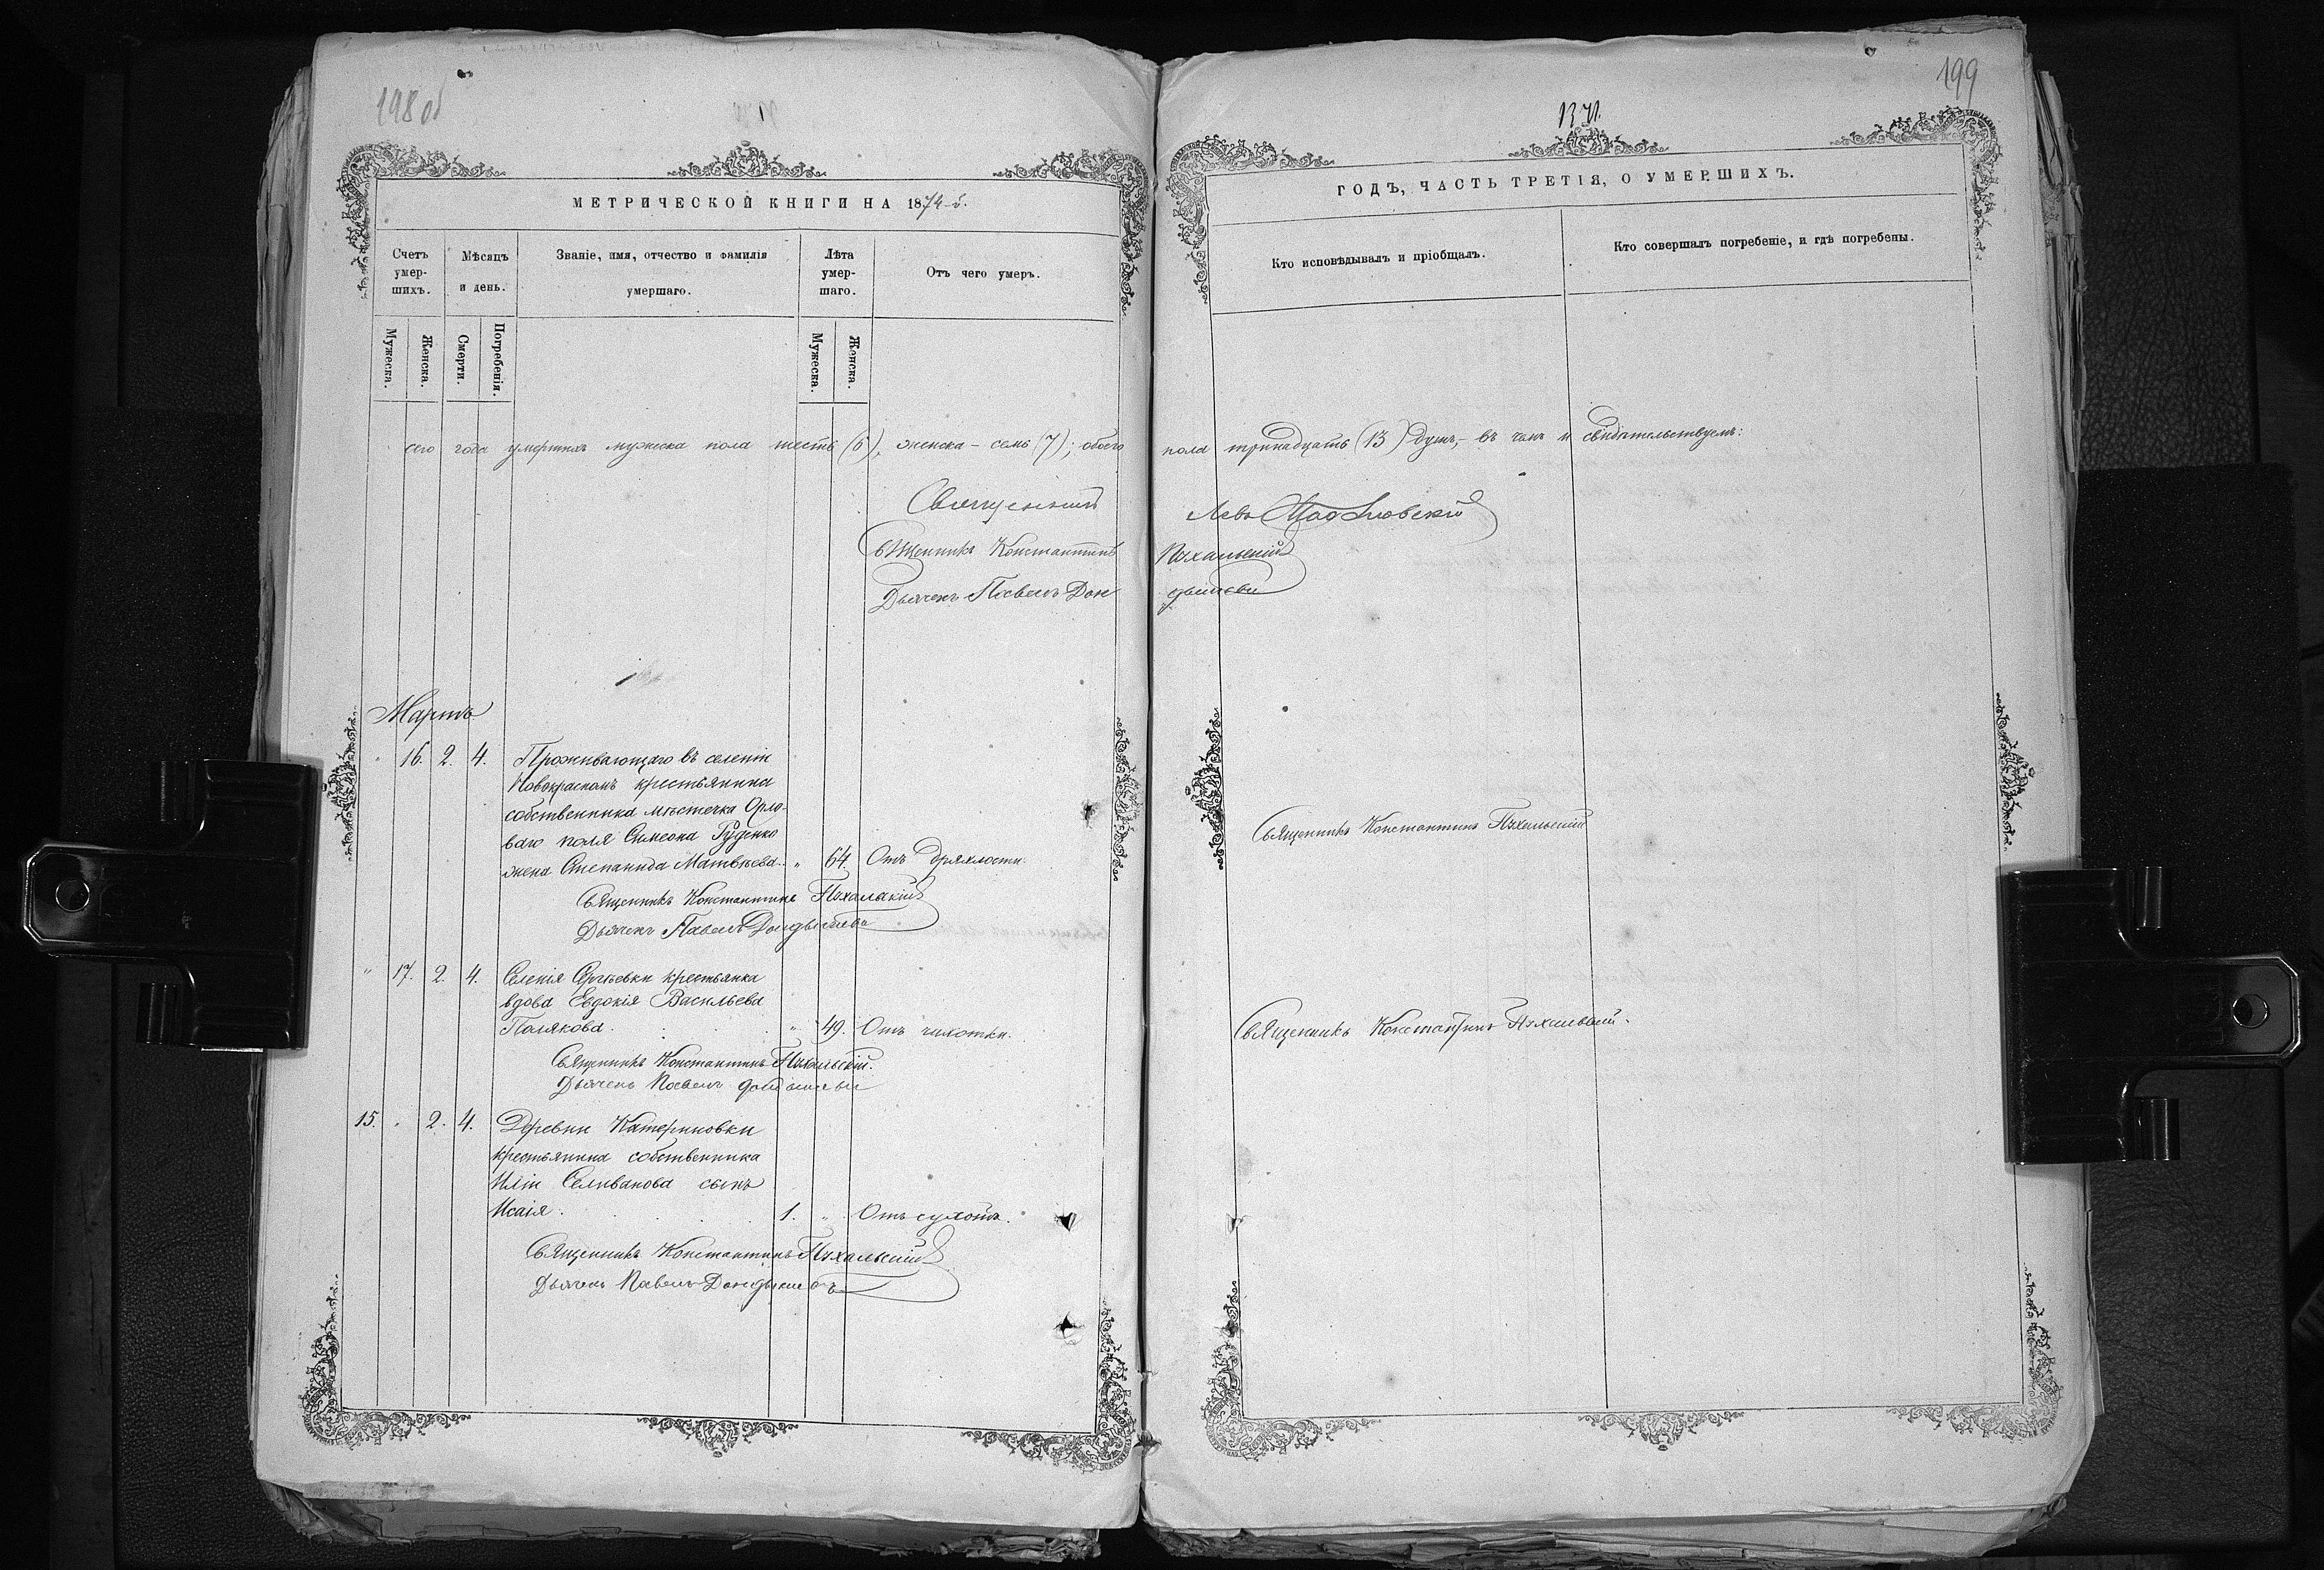 198 об
МЕТРИЧЕСКОЙ КНИГИ НА 1874-й.
Счетъ умер-шихъ.
Мѣсяцъ и день.
Званіе, имя, отчество и фамилія умершаго.
Лѣта умер-шаго.
Отъ чего умеръ.
Мужеска.
Женска.
Смерти.
Погребенія.
Мужеска.
Женска.
сего года умершихъ мужеска пола шесть (6), женска – семь (7); обоего
Священникъ
Священникъ Константинъ
Дьячекъ Павелъ Дон
Мартъ
" 16. 2. 4. Проживающаго въ селеніи
Новокрасномъ крестьянина
собственника мѣстечка Орло-
ваго поля Симеона Руденко
жена Степанида Матвѣева. " 64 Отъ дряхлости.
Священникъ Константинъ Пухальскій
Дьячекъ Павелъ Дондышевъ
" 17. 2. 4. Селенія Сергѣевки крестьянка
вдова Евдокія Васильева
Полякова. " 49. Отъ чахотки.
Священникъ Константинъ Пухальскій.
Дьячекъ Павелъ
15. " 2. 4. Деревни Катериновки
крестьянина собственника
Иліи Селиванова сынъ
Исаія. 1. " Отъ сухотъ.
Священникъ Константинъ Пухальскій
Дьячекъ Павелъ Дондышевъ
199
ГОДЪ, ЧАСТЬ ТРЕТІЯ, О УМЕРШИХЪ.
Кто исповѣдывалъ и пріобщалъ.
Кто совершалъ погребеніе, и гдѣ погребены.
пола тринадцать (13) душъ, – въ чемъ и свидѣтельствуемъ:
Левъ
Пухальскій
дышевъ
Священникъ Константинъ Пухальскій
Священникъ Константинъ Пухальскій.